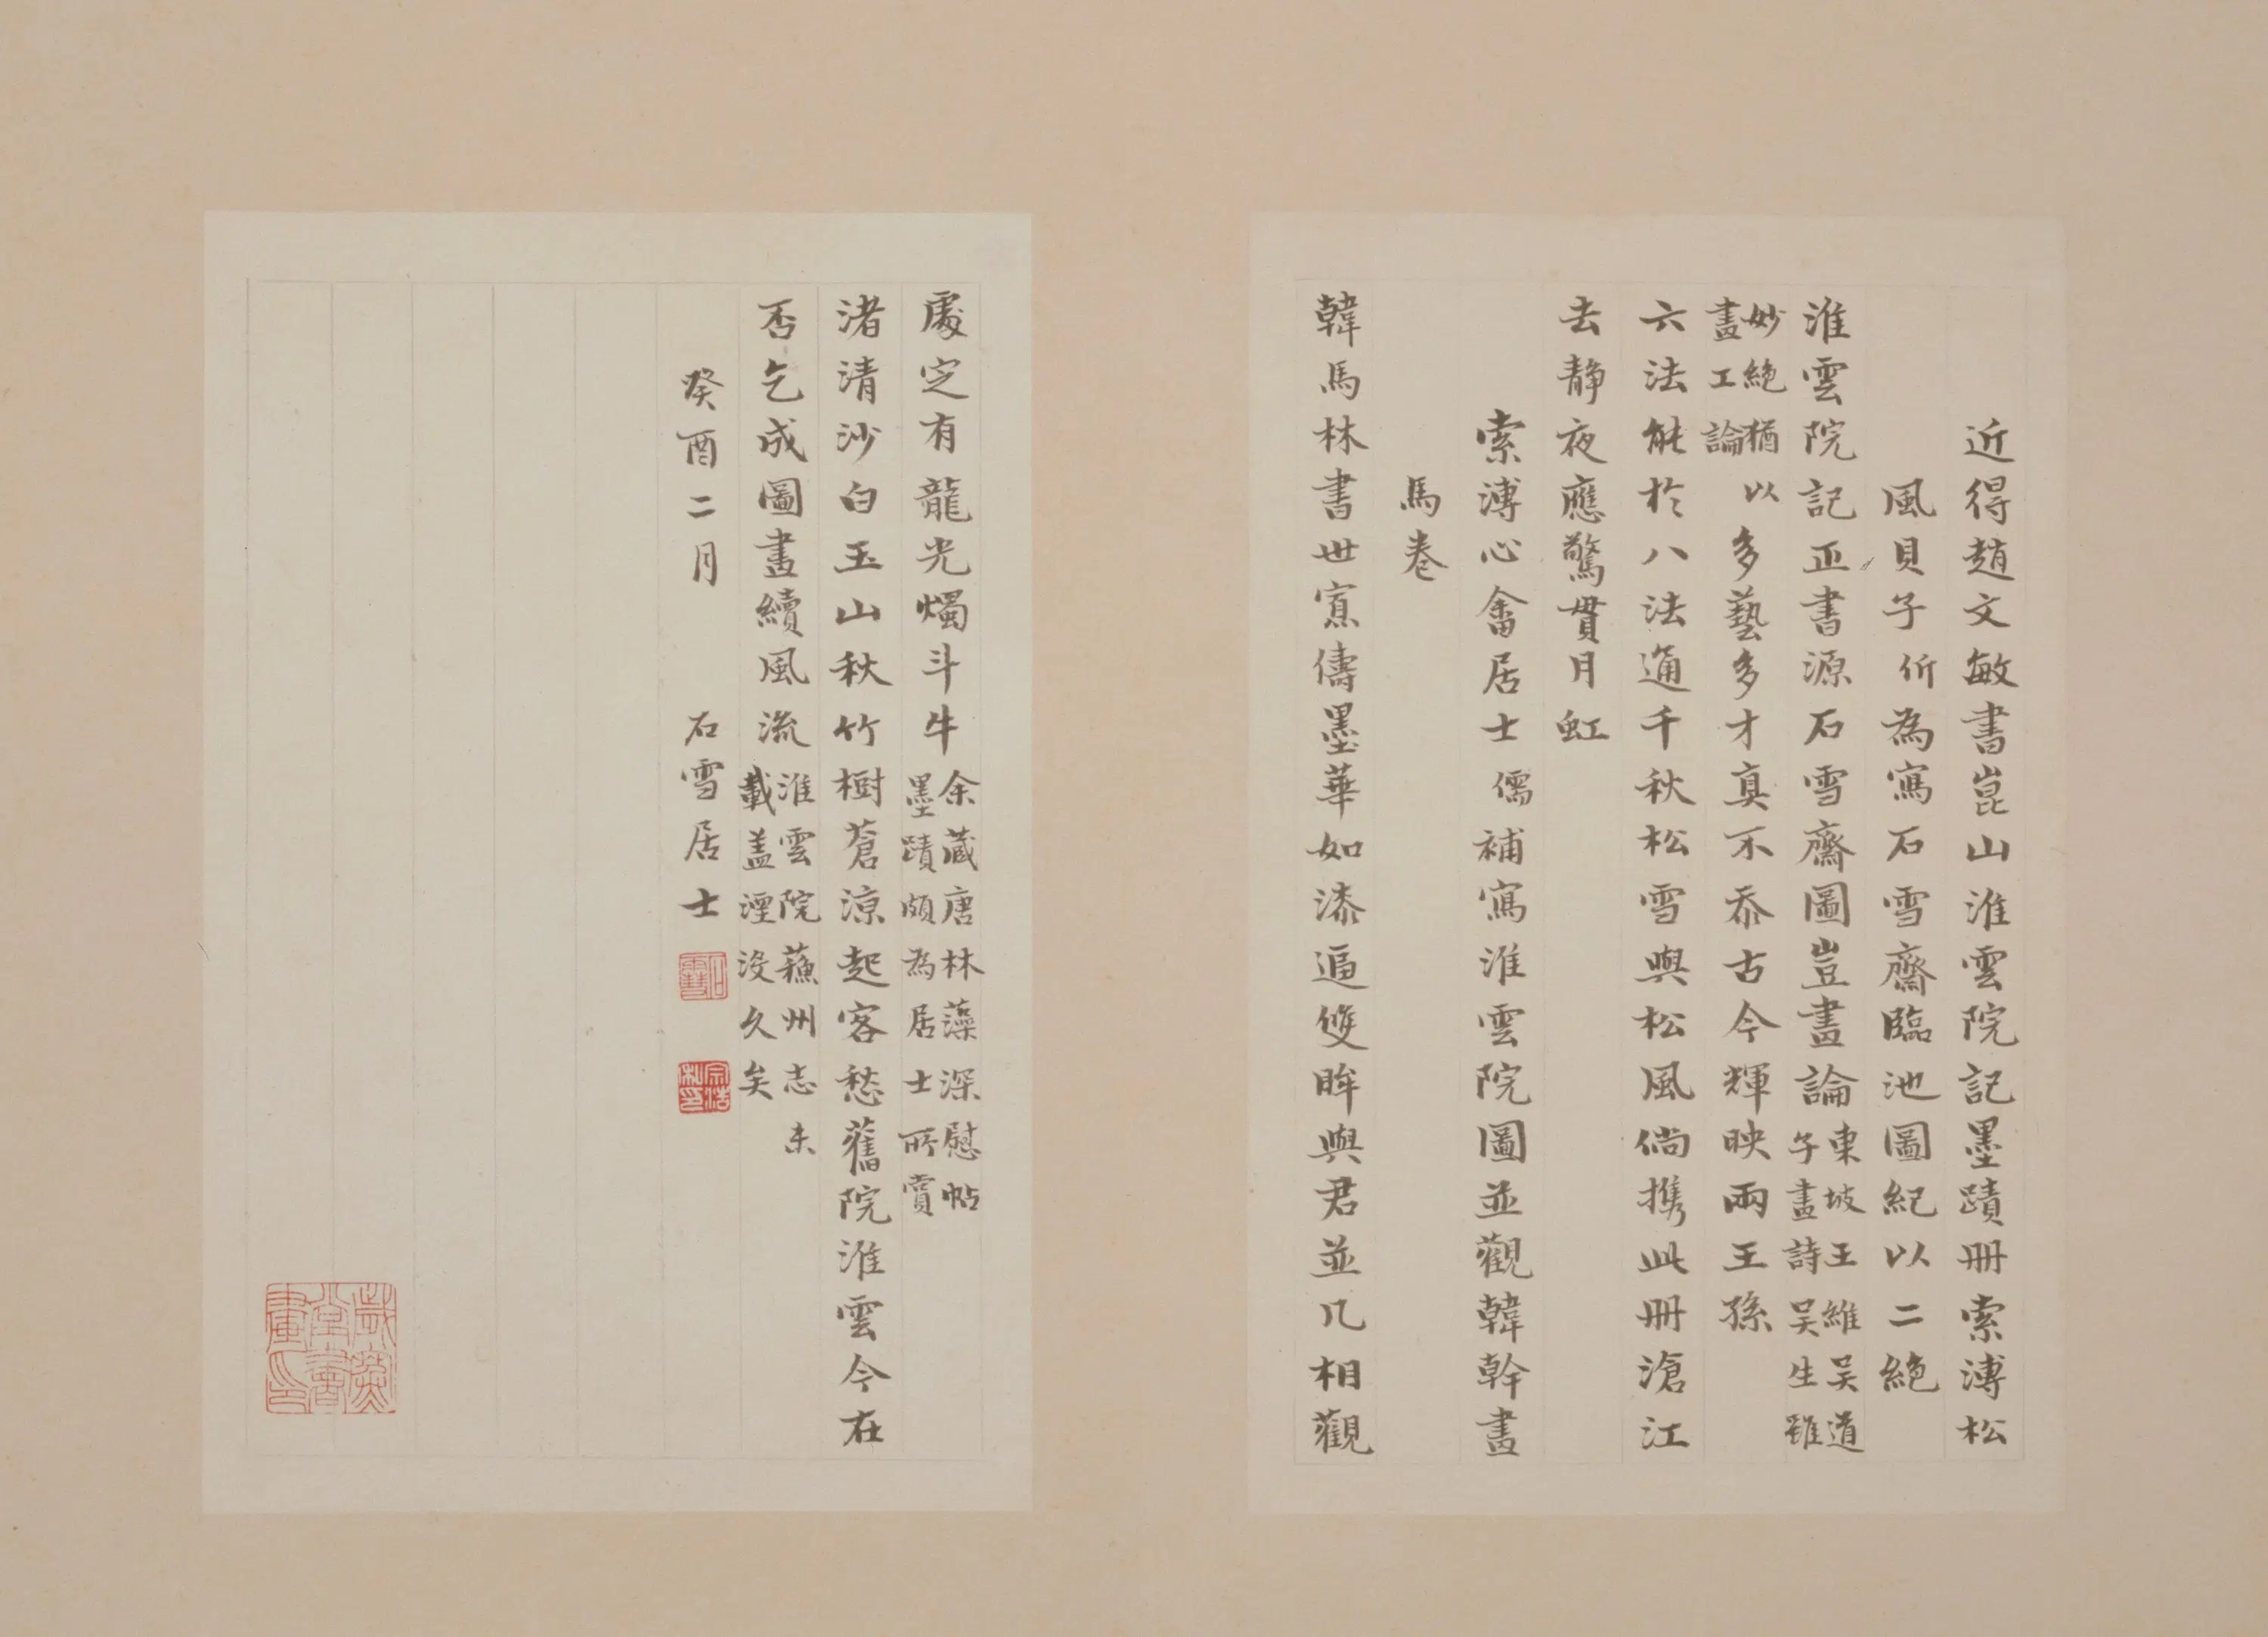 近得趙文敏書崑山淮雲院記墨蹟冊索溥松
風貝子伒為寫石雪齋臨池圖紀以二絕
淮雲院記正書源石雪齋圖豈畫論
東坡王維吳道
子畫詩吳生雖
妙絕猶以
畫工論
多藝多才真不忝古今輝映兩王孫
六法能於八法通千秋松雪與松風倘携此冊滄江
去靜夜應驚貫月虹
索溥心畬居士儒補寫淮雲院圖並觀韓幹畫
馬卷
韓馬林書世寡儔墨華如漆逼雙眸與君並几相觀
處定有龍光燭斗牛
余藏唐林藻深慰帖
墨蹟頗為居士所賞
渚清沙白玉山秋竹樹蒼涼起客愁舊院淮雲今在
否乞成圖畫續風流
淮雲院蘇州志未
載盖湮沒久矣
癸酉二月 石雪居士
石雪
宗浩私印